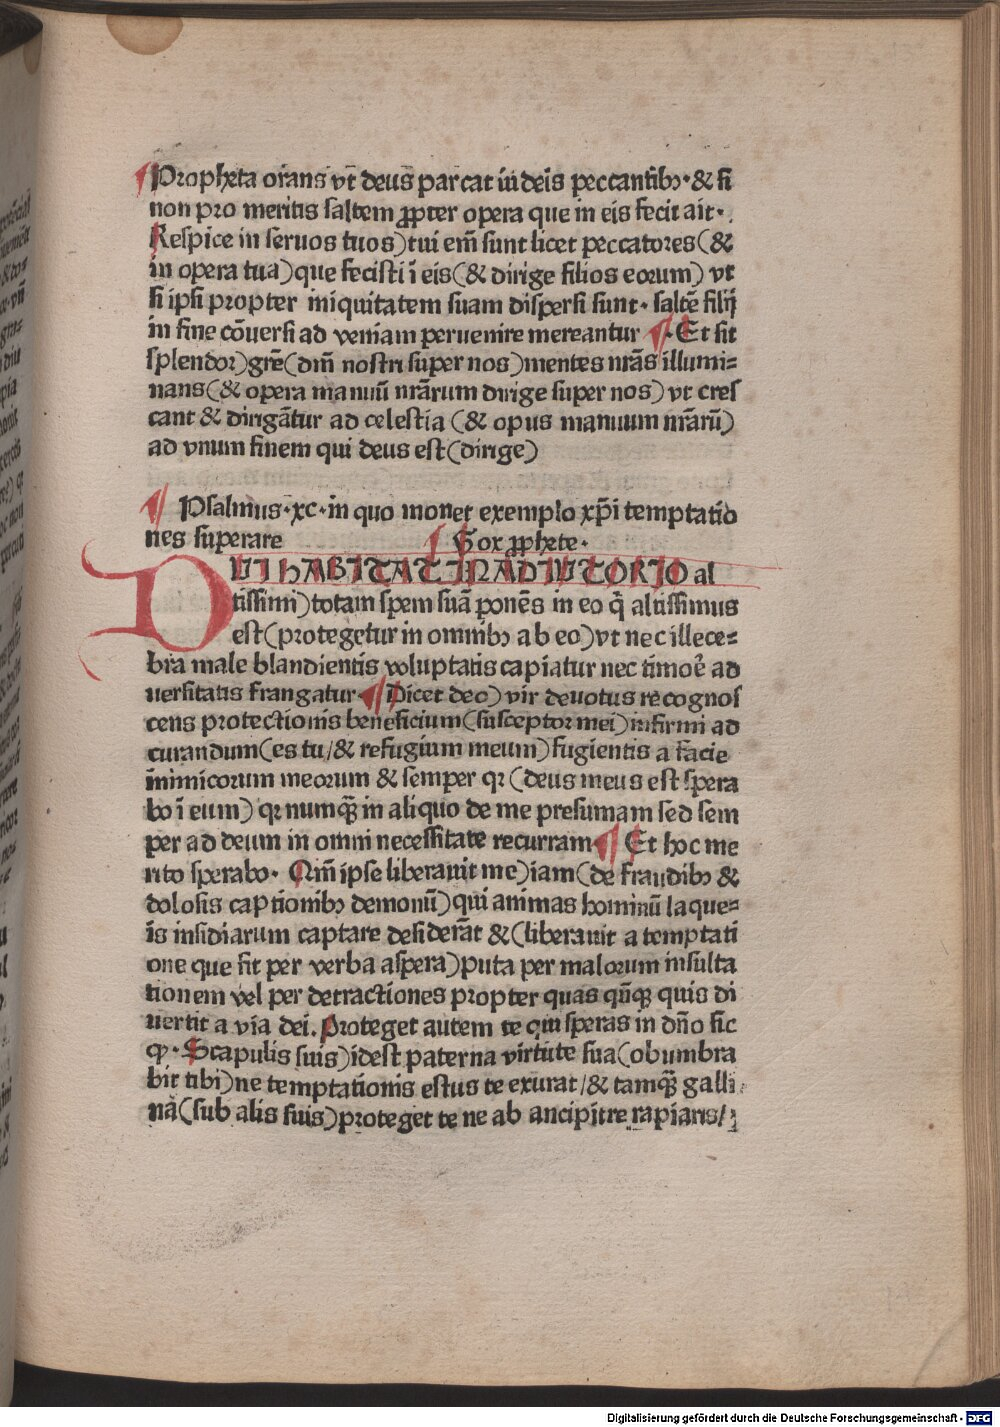 ¶Propheta orans vt deus parcat iudeis peccantibꝫ·& si
non pro meritis saltem ꝓpter opera que in eis fecit ait·
Respice in seruos tuos)tui em̄ sunt licet peccatores(&
in opera tua)que fecisti ī eis(& dirige filios eorum) vt
si ipsi propter iniquitatem suam dispersi sunt· saltē filij
in fine cōuersi ad veniam peruenire mereantur ¶·Et sit
splendor)gr̄e(dn̄i nostri super nos)mentes nr̄as illumi-
nans(& opera manuū nr̄arum dirige super nos) vt cres
cant & dirigātur ad celestia (& opus manuum nr̄arū)
ad vnum finem qui deus est(dirige)
¶ Psalmus·xc·in quo monet exemplo xp̄i temptatio
nes superare ¶ Vox ꝓphete·
QVI HABITAT IN ADIVTORIO al
tissimi)totam spem suā ponēs in eo q̄ altissimus
est(protegetur in omnibꝫ ab eo)vt nec illece-
bra male blandientis voluptatis capiatur nec timor̄e ad
uersitatis frangatur·¶Dicet deo) vir deuotus recognos
cens protectionis beneficium(susceptor mei)infirmi ad
curandum(es tu/& refugium meum)fugientis a facie
inimicorum meorum & semper qr (deus meus est spera
bo ī eum) qr numqᷓ in aliquo de me presumam sed sem
per ad deum in omni necessitate recurram¶ Et hoc me
rito sperabo· Qm̄ ipse liberauit me)iam(de fraudibꝫ &
dolosis captionibꝫ demonū)qui animas hominū laque-
is insidiarum captare desiderāt &(liberauit a temptati
one que fit per verba aspera)puta per malorum insulta
tionem vel per detractiones propter quas qn̄qꝫ quis di
uertit a via dei. Proteget autem te qui speras in dn̄o sic
ꝙ·Scapulis suis)idest paterna virtute sua(obumbra
bit tibi)ne temptationis estus te exurat/& tamqᷓ galli
nā(sub alis suis)proteget te ne ab ancipitre rapiaris/
Digitalisierung gefördert durch die Deutsche Forschungsgemeinschaft - DFG